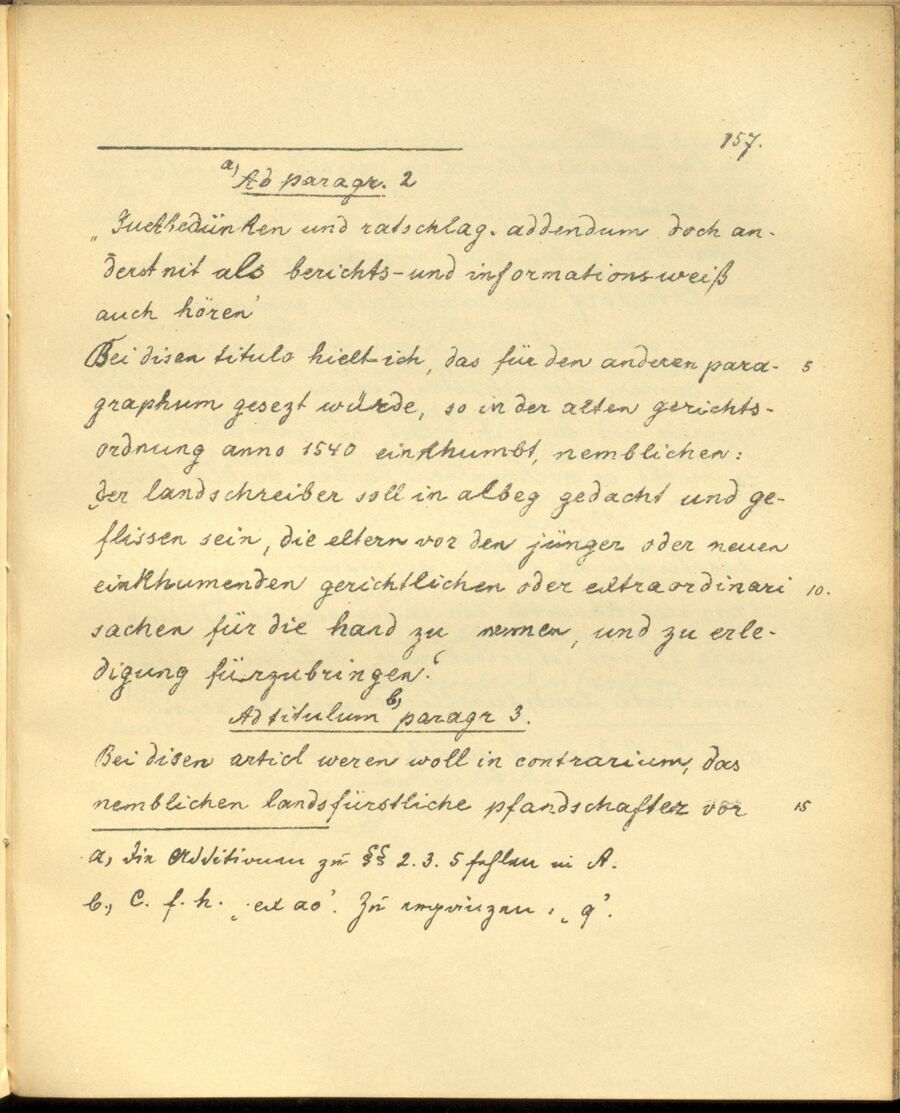 157.
a) Ad paragr. 2
„Guettedünken und ratschlag. addendum doch an-
derst nit als berichts- und informationsweiß
auch hören‘
Bei disen titulo hielt ich, das für den anderen para- 5
graphum gesezt würde, so in der alten gerichts-
ordnung anno 1540 einkhumbt, nemblichen:
‚der landschreiber soll in albeg gedacht und ge-
flissen sein, die eltern vor den jünger oder neuen
einkhumenden gerichtlichen oder extraordinari 10.
sachen für die hand zu nemen, und zu erle-
digung fürzubringen.‘
Ad titulum b) paragr 3.
Bei disen articl weren woll in contrarium, das
nemblichen landsfürstliche pfandschafter vor 15
a) die Additionen zu §§ 2. 3. 5 fehlen in A.
b) C. f. h. ‚ex ao‘. Zu ergänzen: ‚q‘.